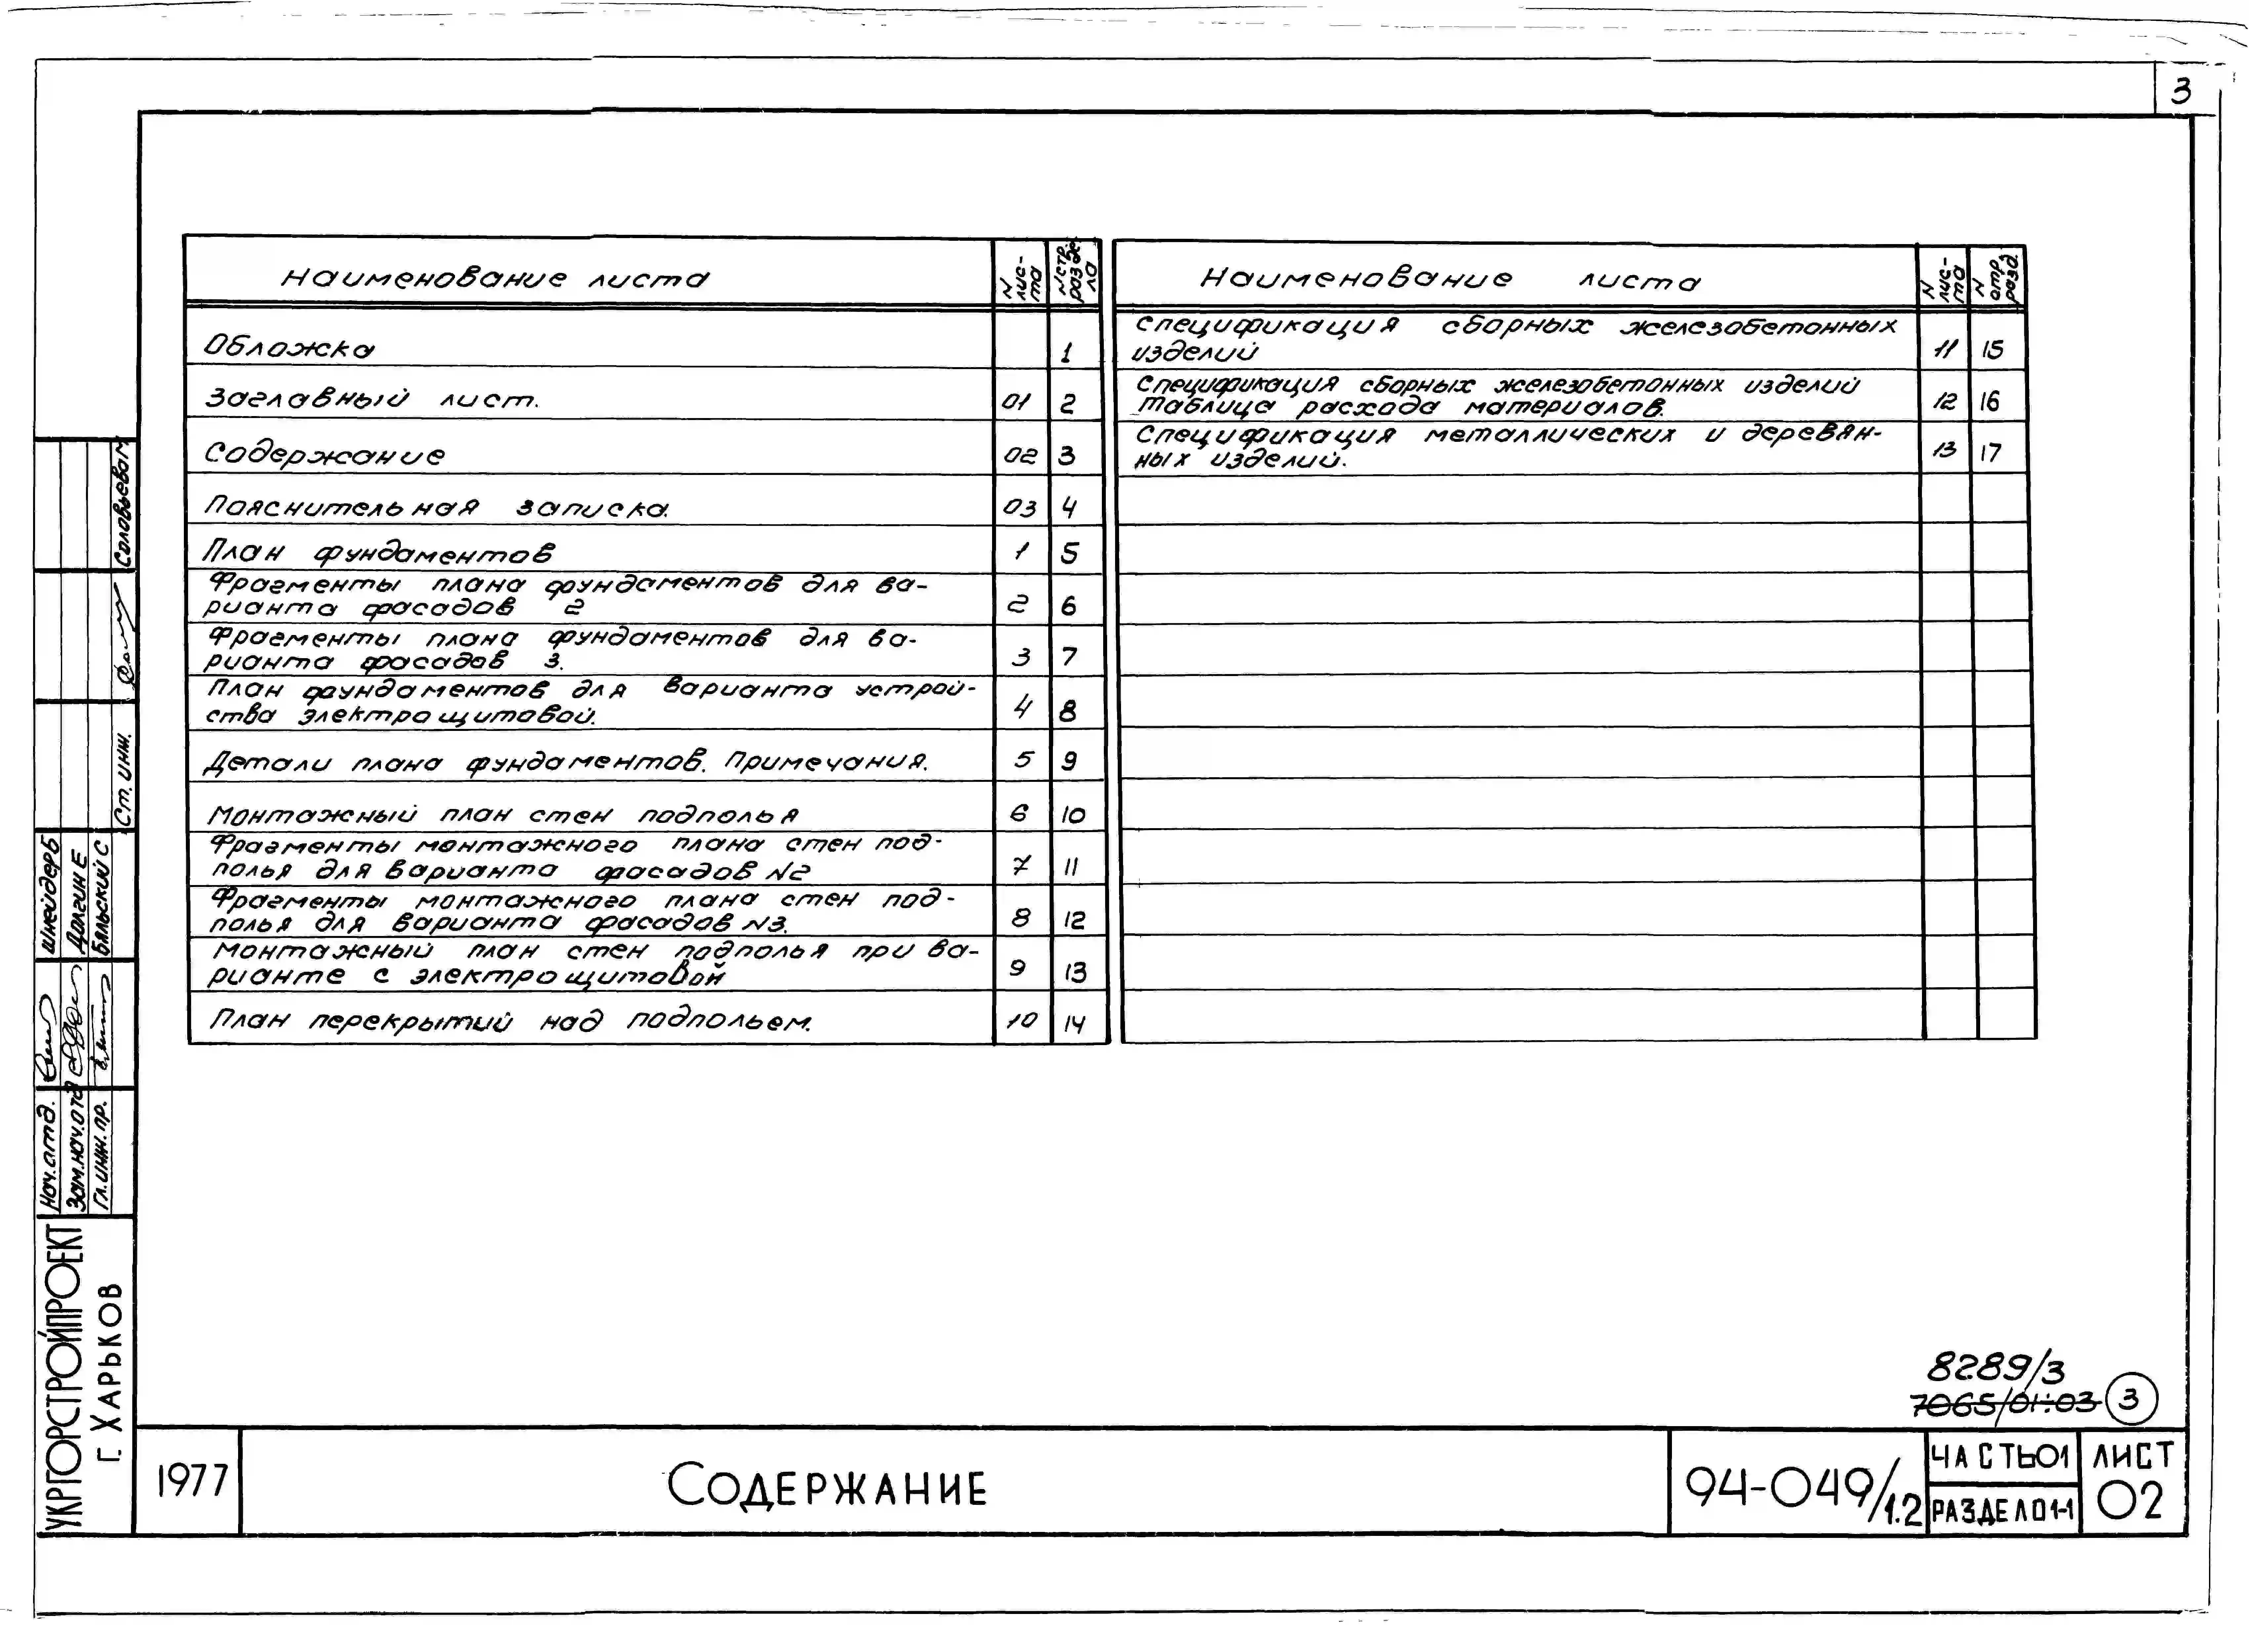 3
Наименование листа
N лис-
та
N стр.
разде-
ла
Обложка 1
Заглавный лист. 01 2
Содержание 02 3
Пояснительная записка. 03 4
План фундаментов 1 5
Фрагменты плана фундаментов для ва-
рианта фасадов 2 2 6
Фрагменты плана фундаментов для ва-
рианта фасадов 3. 3 7
План фундаментов для варианта устрой-
ства электрощитовой. 4 8
Детали плана фундаментов. Примечания. 5 9
Монтажный план стен подполья 6 10
Фрагменты монтажного плана стен под-
полья для варианта фасадов №2 7 11
Фрагменты монтажного плана стен под-
полья для варианта фасадов №3. 8 12
Монтажный план стен подполья при ва-
рианте с электрощитовой 9 13
План перекрытий над подпольем. 10 14
Наименование листа
N
лис-
та
N
стр.
разд.
Спецификация сборных железобетонных
изделий 11 15
Спецификация сборных железобетонных изделий
таблица расхода материалов. 12 16
Спецификация металлических и деревян-
ных изделий. 13 17
Соловьева М
Ст. инж.
Шнейдер Б
Долгин Е
Бяльский С
Нач. отд.
Зам. нач. отд
Гл. инж. пр.
УКРГОРСТРОЙПРОЕКТ
г. ХАРЬКОВ
8289/3
7065/01:03 3
1977
СОДЕРЖАНИЕ
94-049/1.2
ЧАСТЬ 01
РАЗДЕЛ 01-1
ЛИСТ
02